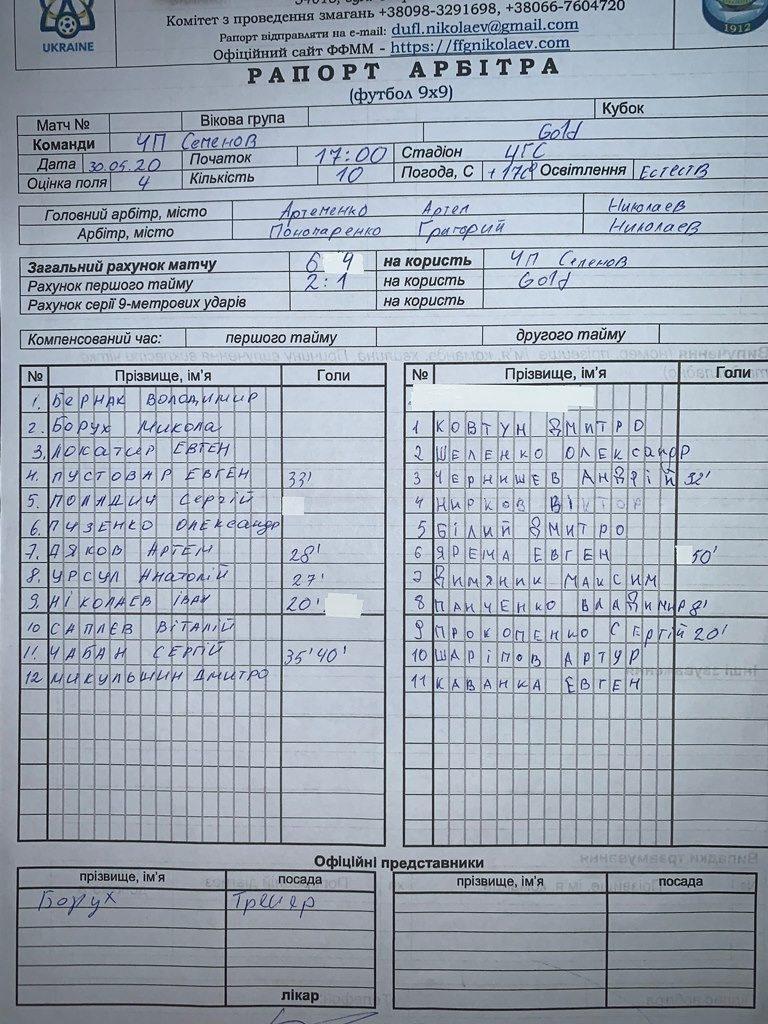 UKRAINE
1912
Комітет з проведення змагань +38098-3291698, +38066-7604720
Рапорт відправляти на e-mail: dufl.nikolaev@gmail.com
Офіційний сайт ФФММ - https://ffgnikolaev.com
РАПОРТ АРБІТРА
(футбол 9х9)
Матч № Вікова група Кубок
Команди ЧП Семенов Gold
Дата 30.05.20 Початок 17:00 Стадіон ЦГС
Оцінка поля 4 Кількість 10 Погода, С +17С Освітлення Естеств
Головний арбітр, місто Артеменко Артем Николаев
Арбітр, місто Пономаренко Григорий Николаев
Загальний рахунок матчу 6 4 на користь ЧП Семенов
Рахунок першого тайму 2:1 на користь Gold
Рахунок серії 9-метрових ударів на користь
Компенсований час: першого тайму другого тайму
№ Прізвище, ім'я Голи
1. Бернак Володимир
2. Борух Микола
3. Локатир Евген
4. Пустовар Евген 33'
5. Поладич Сергій
6. Пузенко Олександр
7. Дяков Артем 28'
8. Урсул Анатолій 27'
9. Ніколаев Іван 20'
10 Саплєв Віталій
11. Чабан Сергій 35' 40'
12 Микульшин Дмитро
№ Прізвище, ім'я Голи
1 Ковтун Дмитро
2 Шеленко Олександр
3 Чернишев Андрій 32'
4 Нирков Віктор
5 Білий Дмитро
6 Ярема Евген 50'
7 Димяник Максим
8 Панченко Владимир 8'
9 Прокопенко Сергій 20'
10 Шаріпов Артур
11 Каванка Евген
Офіційні представники
прізвище, ім'я посада
Борух Тренер
лікар
прізвище, ім'я посада